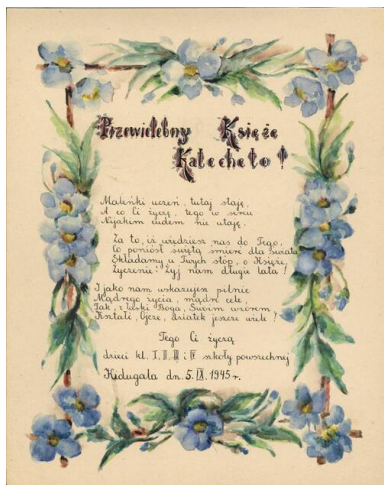 Przewielebny Księże
Katecheto!
Maleńki uczeń, tutaj staję,
A co Ci życzę, tego w sercu
Nijakim cudem nie utaję.
Za to, iż wiedziesz nas do Tego,
Co poniósł świętą śmierć dla świata
Składamy u Twych stóp, o Księże,
Życzenie: Żyj nam długie lata!
I jako nam wskazujesz pilnie
Mądrego życia, mądre cele,
Tak, z łaski Boga, Swoim wzorem
Kształć, Ojcze, dziatek jeszcze wiele!
Tego Ci życzą
dzieci kl. I, II, III i IV szkoły powszechnej
Kidugala dn. 5.IX.1945 r.